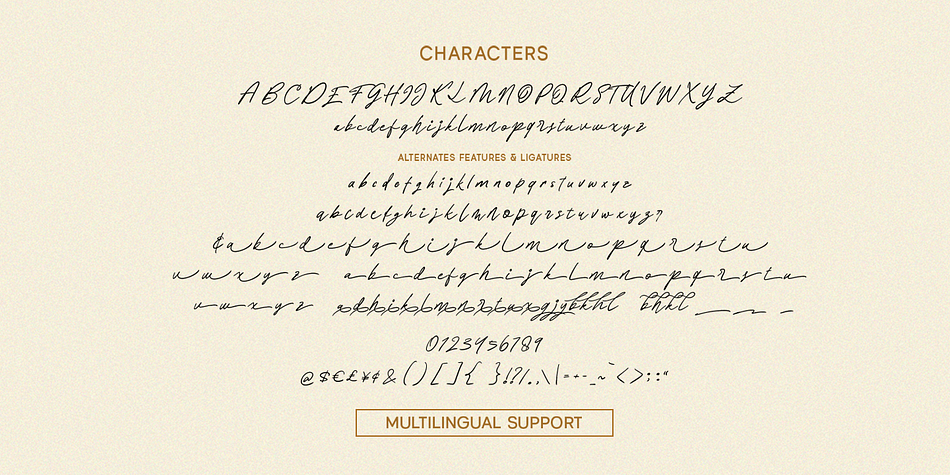 CHARACTERS
ABCDEFGHIJKLMNOPQRSTUVWXYZ
abcdefghijklmnopqrstuvwxyz
ALTERNATES FEATURES & LIGATURES
abcdefghijklmnopqrstuvwxyz
abcdefghijklmnopqrstuvwxyz
abcdefghijklmnopqrstu
vwxyz abcdefghijklmnopqrstu
vwxyz
0123456789
@$€£¥¢&()[]{}!?/.,\|=+-_~`<>;:"
MULTILINGUAL SUPPORT